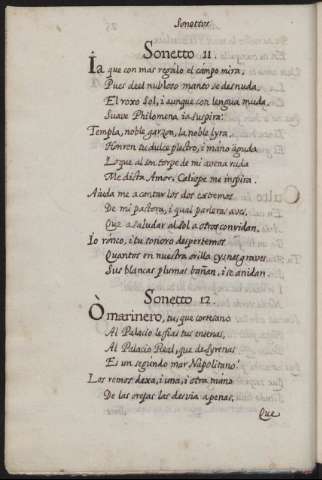 Sonettos
Sonetto 11.
Ia que con mas regalo el campo mira,
Pues del nubloso manto se desnuda,
El roxo Sol, i aunque con lengua muda
Suave Philomena ia suspira:
Templa, noble garzon, la noble lyra,
Honren tu dulce plectro, i mano aguda
Lo que al son torpe de mi avena ruda
Me dicta Amor, Caliope me inspira.
Aiuda me a cantar los dos extremos
De mi pastora, i qual parleras aves,
Que a saludar al Sol a otros convidan.
Io ronco, i tu sonoro despertemos
Quantos en nuestra orilla cysnes graves
Sus blancas plumas bañan, i se anidan.
Sonetto 12.
O marinero, tu, que cortesano
Al Palacio le fias tus entenas,
Al Palacio Real, que de Syrenas
Es un segundo mar Napolitano:
Los remos dexa, i una, i otra mano
De las orejas las desvia apenas,
Que